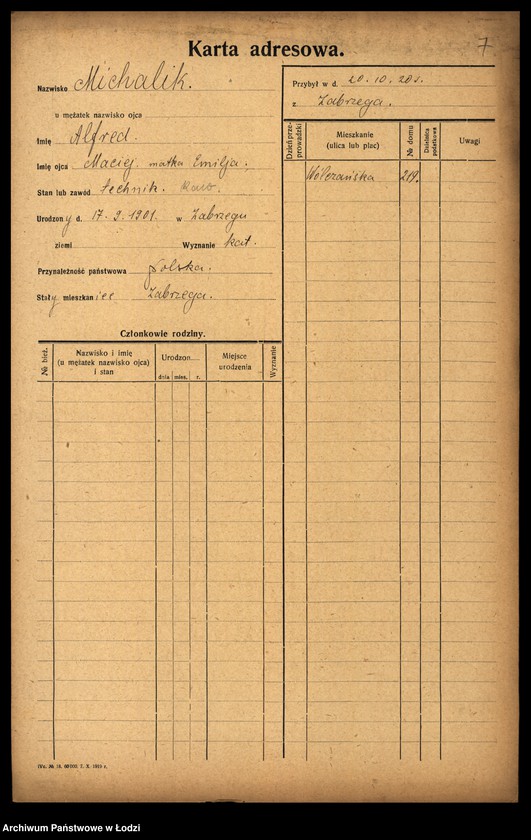 Karta adresowa.
7
Nazwisko Michalik.
u mężatek nazwisko ojca
Imię Alfred.
Imię ojca Maciej. matka Emilja.
Stan lub zawód technik. kaw.
Urodzony d. 17. 9. 1901. w Zabrzegu
ziemi
Wyznanie kat.
Przynależność państwowa Polska.
Stały mieszkaniec Zabrzega.
Przybył w d. 20. 10. 20 r.
z Zabrzega.
Dzień przeprowadzki
Mieszkanie
(ulica lub plac)
№ domu
Dzielnica podatkowa
Uwagi
Wólczańska 219.
Członkowie rodziny.
№ bież.
Nazwisko i imię
(u mężatek nazwisko ojca)
i stan
Urodzon....
dnia mies. r.
Miejsce
urodzenia
Wyznanie
Archiwum Państwowe w Łodzi